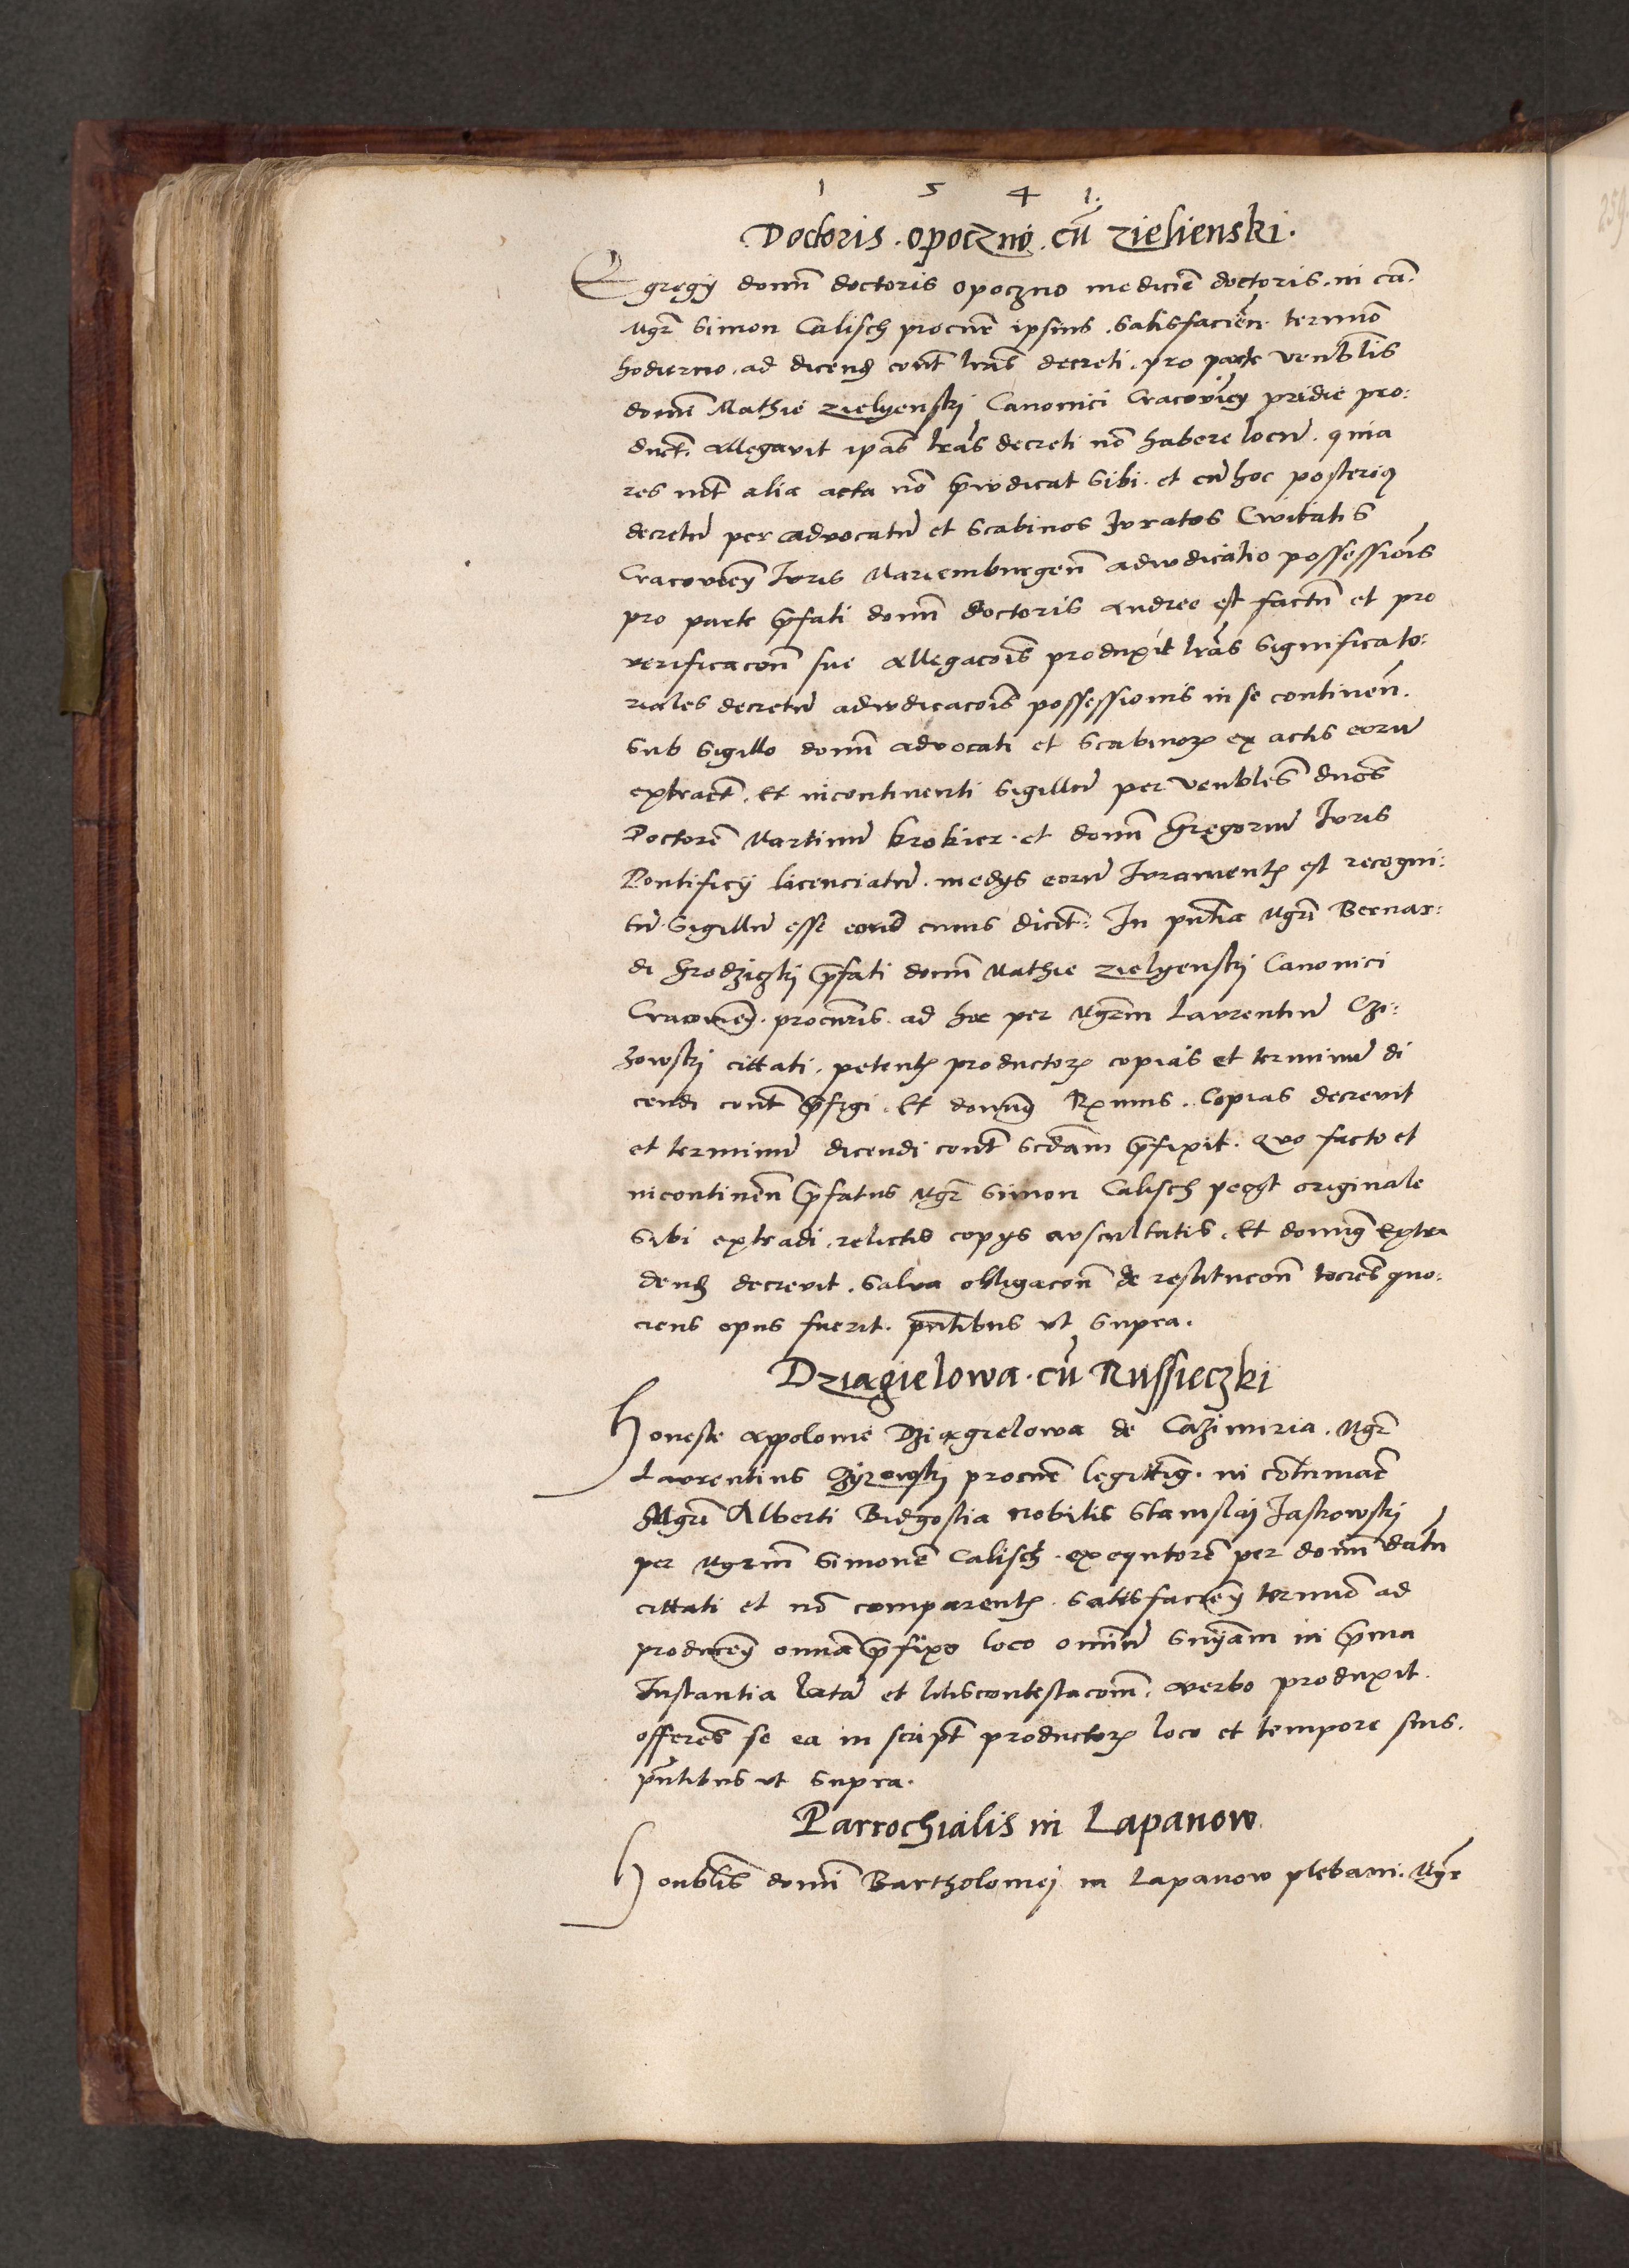 1 5 4 1.
Doctoris . opoczno . cu̅ zielienski .
Egregÿ domi̅ doctoris opoczno medicie̅ doctoris . in ca̅ .
Mgr̅ Simon Calisch procur̅ ipsius . satisfacien̅ . termi̅o
hodierno . ad dicend̅ cont̅ lr̅as decreti . pro parte ven̅blis
domi̅ Mathie zielyenskj Canonici Cracovien̅ pridie pro:
duct̅ . allegavit ip̅as lr̅as decreti no̅ habere locu̅ . quia
res int̅ alia acta no̅ p̅iudicat sibi . et cu̅ hoc posteriq
decretu̅ per advocatu̅ et scabinos Juratos Civitatis
Cracovien̅ Juris Mariemburgen̅ adiudicatio possessio̅is
pro parte p̅fati domi̅ doctoris andree est factu̅ et pro
verificaco̅n̅ sue allegaco̅is produxit lr̅as significato:
riales decretu̅ adiudicaco̅is possessionis in se continen̅ .
sub sigillo domi̅ advocati et scabinor̅ ex actis eoru̅
extract̅ . Et incontinenti sigillu̅ per ven̅bles dn̅os
Doctore̅ Martinu̅ krokier . et domi̅ Gregoriu̅ Juris
Pontificÿ licenciatu̅ . medÿs eoru̅ Juramentis est recogni:
tu̅ . Sigillu̅ esse eor̅d cuius dicit̅ : In pn̅tia Mgri̅ Bernar:
di Grodziczkj p̅fati domi̅ Mathie zielyenskj Canonici
Cracovien̅ . procur̅is . ad hoc per Mgr̅m Laurentiu̅ Czi:
zowskj cittati . petentis productor̅ copias et terminu̅ di
cendi cont̅ p̅figi . Et domi̅q Rx̅mus . Copias decrevit
et terminu̅ dicendi cont̅ scda̅m p̅fixit . Quo facto et
incontinen̅ p̅fatus Mgr̅ Simon Calisch peÿt originale
sibi extradi . relictis copÿs auscultatis . Et domi̅q extra
dend̅ decrevit . salva obligaco̅n̅ de restituco̅n̅ tocies̅ quo:
ciens opus fuerit . pn̅tibus ut supra .
Dziagielowa . cu̅ Russieczki
Honeste appolonie Dziagielowa de Cazimiria . Mgr̅
Laurentius Czyzowskj procur̅ legittim̅q . in co̅tumac̅
Mgri̅ Alberti Bidgostia nobilis Stanislaj Jaskowskj
per Mgrm̅ Simone̅ Calisch . exequtore̅ per domi̅ datu̅
cittati et no̅ comparentis . satisfacien̅ termi̅o ad
producen̅ omnia p̅fixo loco omi̅n̅ sn̅ÿam in p̅ma
Instantia lata̅ et litiscontestaco̅m̅ . verbo produxit .
offeres̅ se ea in script̅ productor̅ loco et tempore suis .
pn̅tibus ut supra .
Parrochialis in Lapanow
Hon̅blis domi̅ Bartholomej in Lapanow plebani . Mgr̅